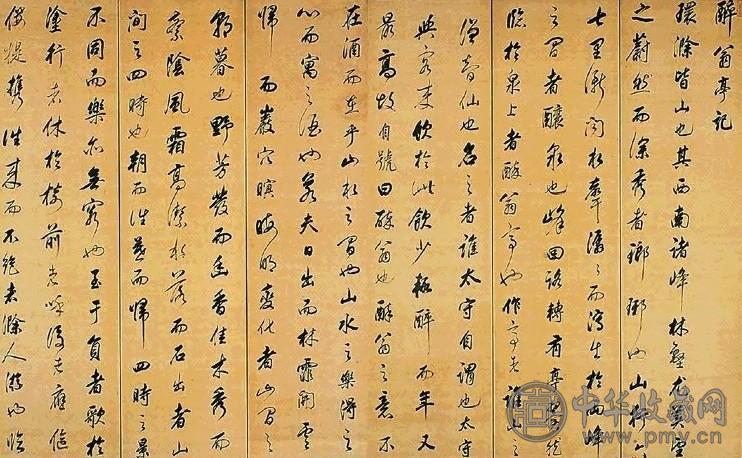 醉翁亭記
環滁皆山也其西南諸峰林壑尤美望
之蔚然而深秀者瑯琊也山行六
七里漸聞水聲潺々而瀉出於兩峰
之間者釀泉也峰回路轉有亭翼然
臨於泉上者醉翁亭也作亭者誰山之
僧智仙也名之者誰太守自謂也太守
與客來飲於此飲少輒醉而年又
最高故自號曰醉翁也醉翁之意不
在酒而在乎山水之間也山水之樂得之
心而寓之酒也若夫日出而林霏開雲
歸而巖穴暝晦明變化者山間之
朝暮也野芳發而幽香佳木秀而
繁陰風霜高潔水落而石出者山
間之四時也朝而往暮而歸四時之景
不同而樂亦無窮也至于負者歌於
塗行者休於樹前者呼後者應傴
僂提攜往來而不絕者滁人游也臨
中华收藏网